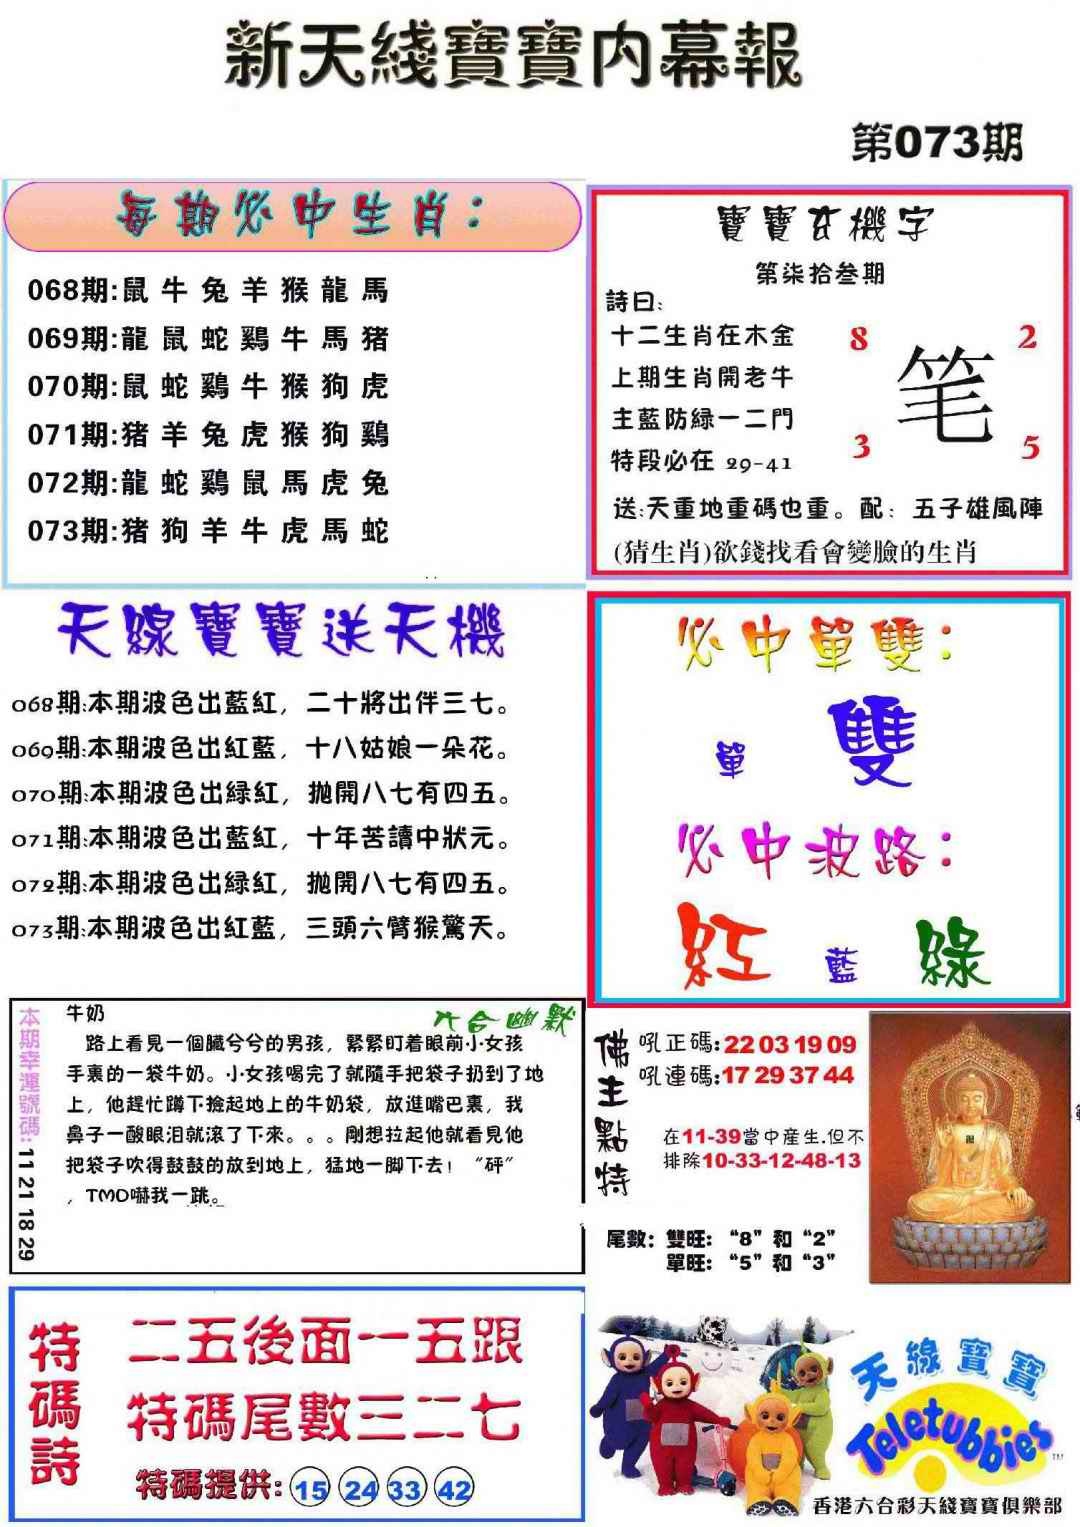 新天綫寶寶内幕報
第073期
每期必中生肖：
068期:鼠牛兔羊猴龍馬
069期:龍鼠蛇鷄牛馬猪
070期:鼠蛇鷄牛猴狗虎
071期:猪羊兔虎猴狗鷄
072期:龍蛇鷄鼠馬虎兔
073期:猪狗羊牛虎馬蛇
寶寶玄機字
第柒拾叁期
詩曰:
十二生肖在木金
上期生肖開老牛
主藍防緑一二門
特段必在 29-41
8
2
笔
3
5
送:天重地重碼也重。配：五子雄風陣
(猜生肖)欲錢找看會變臉的生肖
天線寶寶送天機
068期:本期波色出藍紅，二十將出伴三七。
069期:本期波色出紅藍，十八姑娘一朵花。
070期:本期波色出緑紅，抛開八七有四五。
071期:本期波色出藍紅，十年苦讀中狀元。
072期:本期波色出緑紅，抛開八七有四五。
073期:本期波色出紅藍，三頭六臂猴驚天。
必中單雙：
單 雙
必中波路：
紅 藍 綠
本期幸運號碼: 11 21 18 29
六合幽默
牛奶
路上看見一個臟兮兮的男孩，緊緊盯着眼前小女孩
手裏的一袋牛奶。小女孩喝完了就隨手把袋子扔到了地
上，他趕忙蹲下撿起地上的牛奶袋，放進嘴巴裏，我
鼻子一酸眼泪就滚了下來。。。剛想拉起他就看見他
把袋子吹得鼓鼓的放到地上，猛地一脚下去！“砰”
，TMD嚇我一跳。
佛主點特
吼正碼:22 03 19 09
吼連碼:17 29 37 44
在11-39當中産生.但不
排除10-33-12-48-13
尾數：雙旺：“8”和“2”
單旺：“5”和“3”
特碼詩
二五後面一五跟
特碼尾數三二七
特碼提供: 15 24 33 42
天線寶寶
Teletubbies
TM
香港六合彩天綫寶寶俱樂部